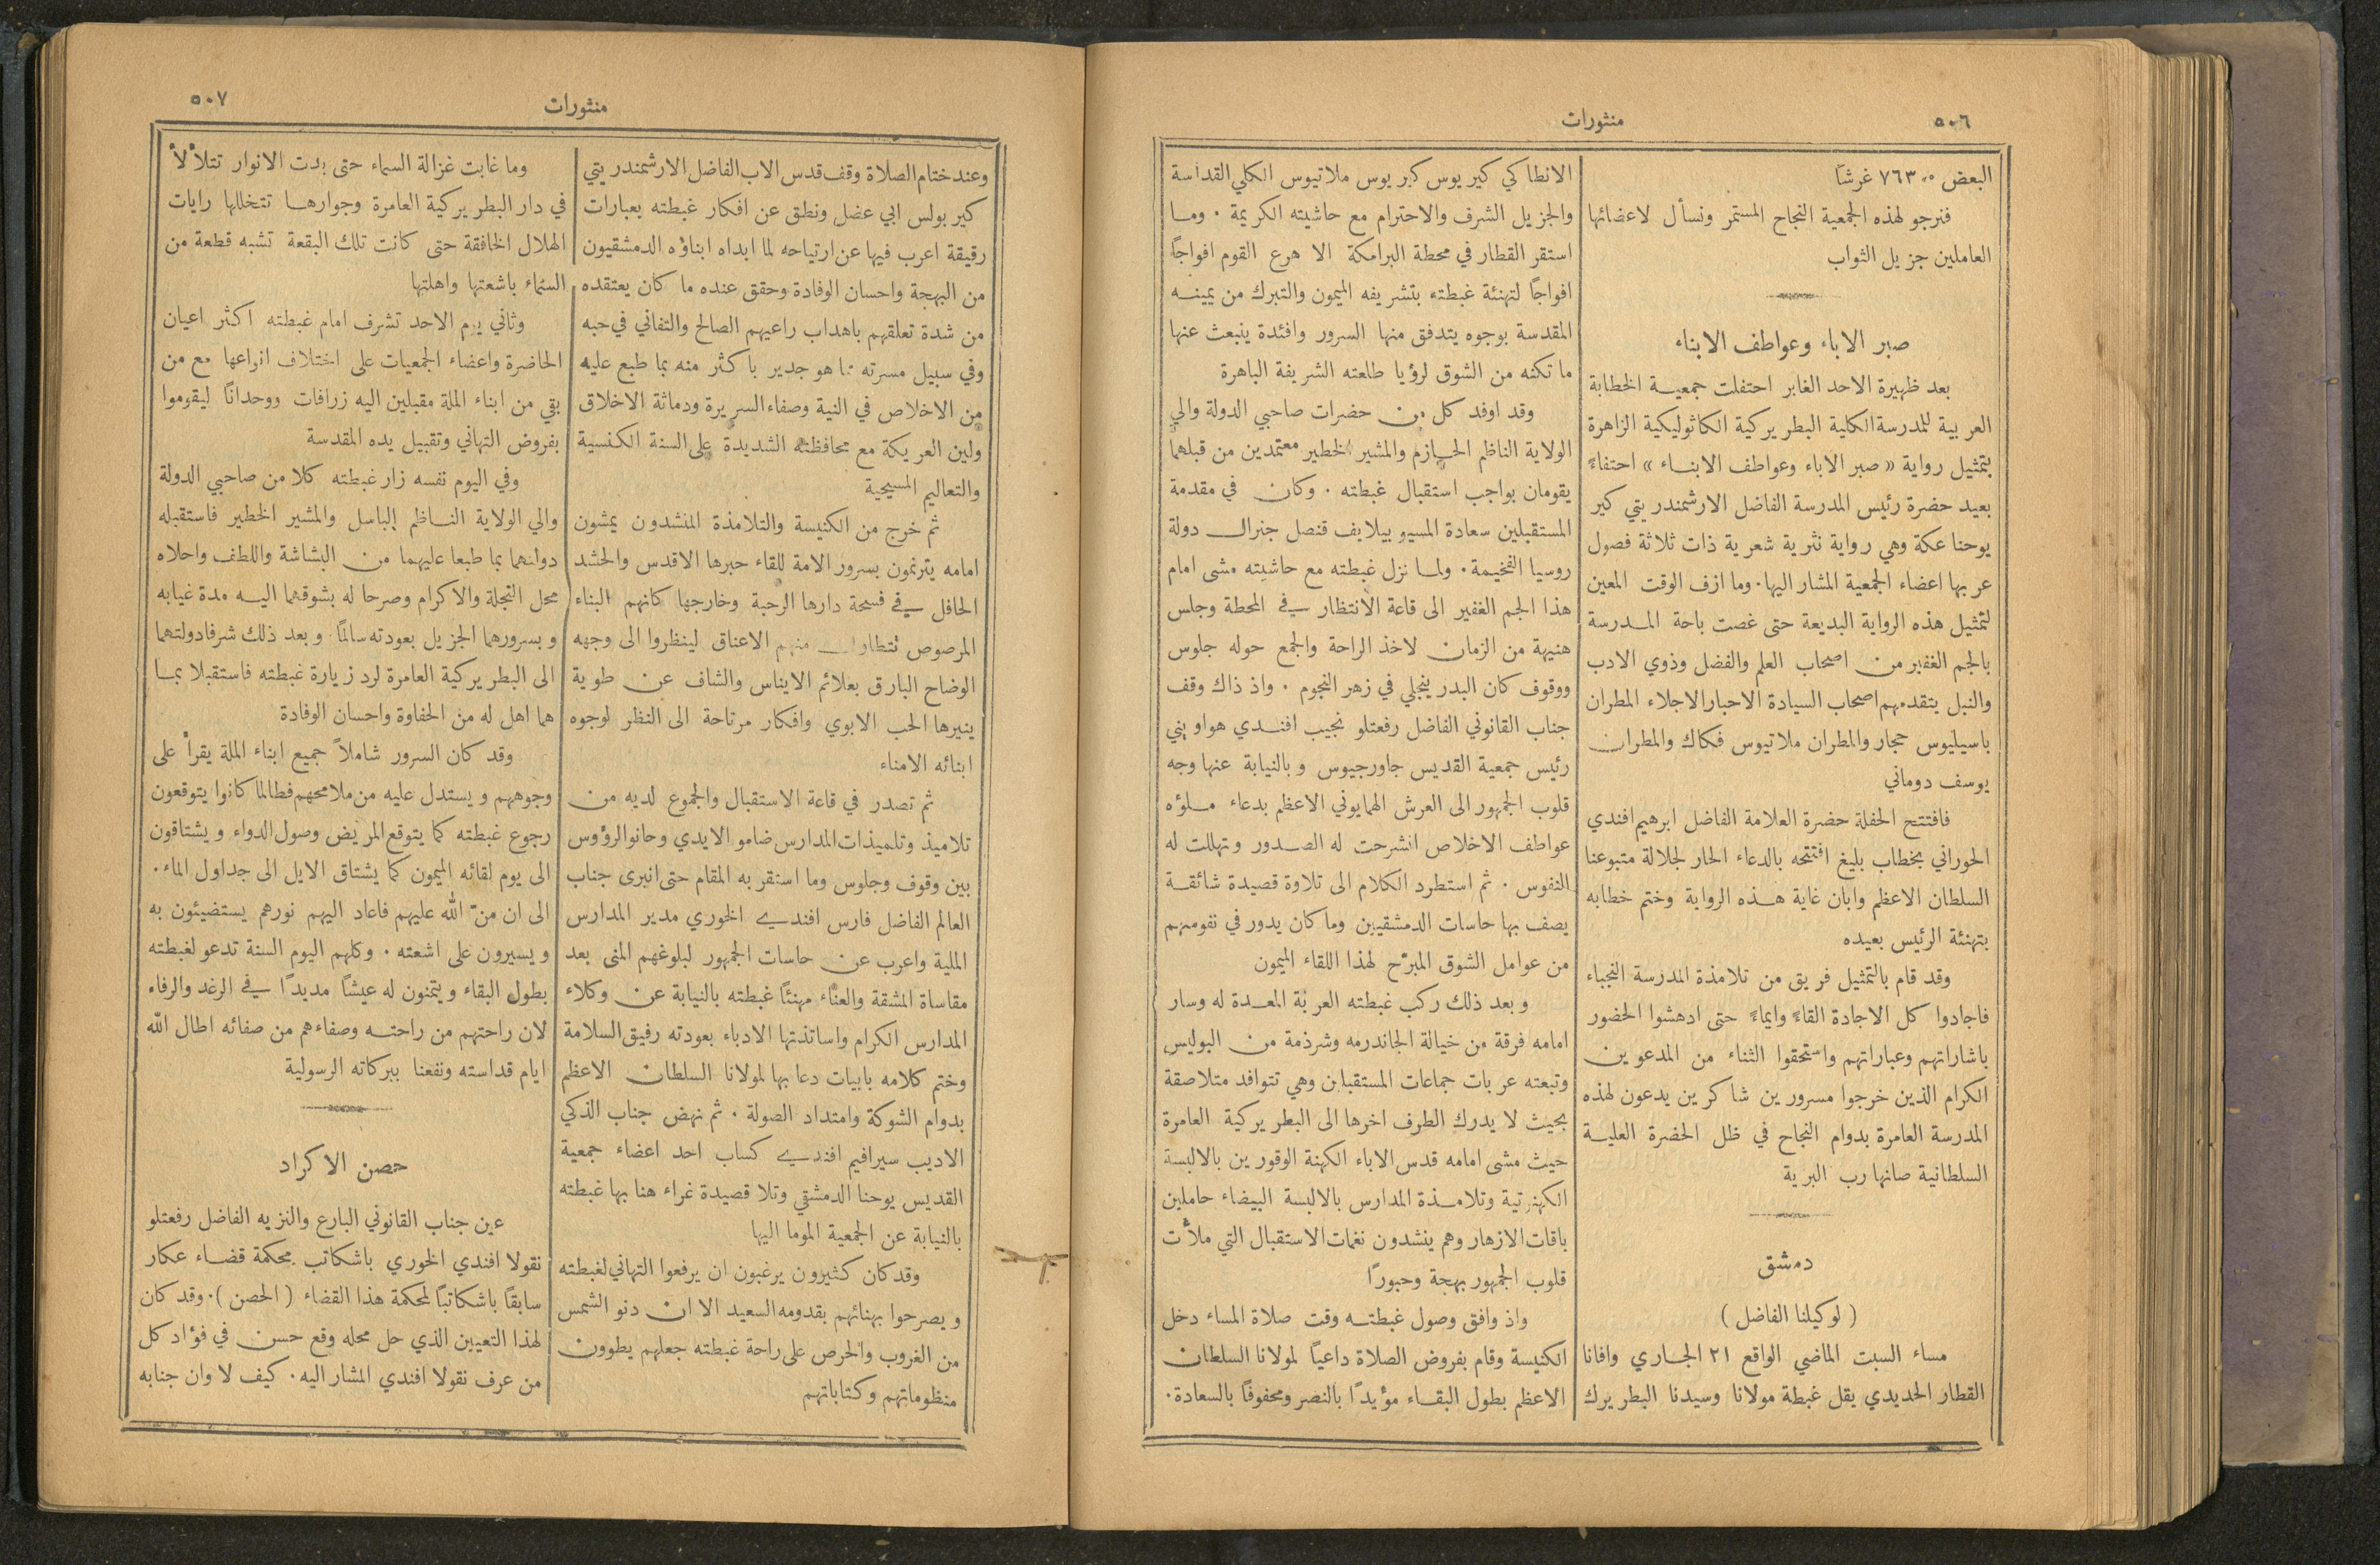 ٥٠٦
منثورات
البعض ٧٦٣٠٠ غرشاً
فنرجو لهذه الجمعية النجاح المستمر ونسأل لاعضائها
العاملين جزيل الثواب
صبر الاباء وعواطف الابناء
بعد ظهيرة الاحد الغابر احتفلت جمعية الخطابة
العربية للمدرسة الكلية البطريركية الكاثوليكية الزاهرة
بتمثيل رواية « صبر الاباء وعواطف الابناء » احتفاءً
بعيد حضرة رئيس المدرسة الفاضل الارشمندريتي كير
يوحنا عكة وهي رواية نثرية شعرية ذات ثلاثة فصول
عربها اعضاء الجمعية المشار اليها . وما ازف الوقت المعين
لتمثيل هذه الرواية البديعة حتى غصت باحة المدرسة
بالجم الغفير من اصحاب العلم والفضل وذوي الادب
والنبل يتقدمهم اصحاب السيادة الاحبار الاجلاء المطران
باسيليوس حجار والمطران ملاتيوس فكاك والمطران
يوسف دوماني
فافتتح الحفلة حضرة العلامة الفاضل ابرهيم افندي
الحوراني بخطاب بليغ افتتحه بالدعاء الحار لجلالة متبوعنا
السلطان الاعظم وابان غاية هذه الرواية وختم خطابه
بتهنئة الرئيس بعيده
وقد قام بالتمثيل فريق من تلامذة المدرسة النجباء
فاجادوا كل الاجادة القاءً وايماءً حتى ادهشوا الحضور
باشاراتهم وعباراتهم واستحقوا الثناء من المدعوين
الكرام الذين خرجوا مسرورين شاكرين يدعون لهذه
المدرسة العامرة بدوام النجاح في ظل الحضرة العلية
السلطانية صانها رب البرية
دمشق
( لوكيلنا الفاضل )
مساء السبت الماضي الواقع ٢١ الجاري وافانا
القطار الحديدي يقل غبطة مولانا وسيدنا البطريرك
الانطاكي كير يوس كير يوس ملاتيوس الكلي القداسة
والجزيل الشرف والاحترام مع حاشيته الكريمة . وما
استقر القطار في محطة البرامكة الا هرع القوم افواجاً
افواجاً لتهنئة غبطته بتشريفه الميمون والتبرك من يمينه
المقدسة بوجوه يتدفق منها السرور وافئدة ينبعث عنها
ما تكنه من الشوق لرؤيا طلعته الشريفة الباهرة
وقد اوفد كل من حضرات صاحبي الدولة والي
الولاية الناظم الحازم والمشير الخطير معتمدين من قبلهما
يقومان بواجب استقبال غبطته . وكان في مقدمة
المستقبلين سعادة المسيو بيلايف قنصل جنرال دولة
روسيا الفخيمة . ولما نزل غبطته مع حاشيته مشى امام
هذا الجم الغفير الى قاعة الانتظار في المحطة وجلس
هنيهة من الزمان لاخذ الراحة والجمع حوله جلوس
ووقوف كان البدر ينجلي في زهر النجوم . واذ ذاك وقف
جناب القانوني الفاضل رفعتلو نجيب افندي هواويني
رئيس جمعية القديس جاورجيوس وبالنيابة عنها وجه
قلوب الجمهور الى العرش الهمايوني الاعظم بدعاء ملؤه
عواطف الاخلاص انشرحت له الصدور وتهللت له
النفوس . ثم استطرد الكلام الى تلاوة قصيدة شائقة
يصف بها حاسات الدمشقيين وما كان يدور في نفوسهم
من عوامل الشوق المبرّح لهذا اللقاء الميمون
وبعد ذلك ركب غبطته العربة المعدة له وسار
امامه فرقة من خيالة الجاندرمه وشرذمة من البوليس
وتبعته عربات جماعات المستقبلين وهي تتوافد متلاصقة
بحيث لا يدرك الطرف اخرها الى البطريركية العامرة
حيث مشى امامه قدس الاباء الكهنة الوقورين بالالبسة
الكهنوتية وتلامذة المدارس بالالبسة البيضاء حاملين
باقات الازهار وهم ينشدون نغمات الاستقبال التي ملأت
قلوب الجمهور بهجة وحبوراً
واذ وافق وصول غبطته وقت صلاة المساء دخل
الكنيسة وقام بفروض الصلاة داعياً لمولانا السلطان
الاعظم بطول البقاء مؤيداً بالنصر ومحفوفاً بالسعادة .
منثورات
٥٠٧
وعند ختام الصلاة وقف قدس الاب الفاضل الارشمندريتي
كير بولس ابي عضل ونطق عن افكار غبطته بعبارات
رقيقة اعرب فيها عن ارتياحه لما ابداه ابناؤه الدمشقيون
من البهجة واحسان الوفادة وحقق عنده ما كان يعتقده
من شدة تعلقهم باهداب راعيهم الصالح والتفاني في حبه
وفي سبيل مسرته مما هو جدير باكثر منه بما طبع عليه
من الاخلاص في النية وصفاء السريرة ودماثة الاخلاق
ولين العريكة مع محافظته الشديدة على السنة الكنسية
والتعاليم المسيحية
ثم خرج من الكنيسة والتلامذة المنشدون يمشون
امامه يترنمون بسرور الامة للقاء حبرها الاقدس والحشد
الحافل في فسحة دارها الرحبة وخارجها كانهم البناء
المرصوص تتطاول منهم الاعناق لينظروا الى وجهه
الوضاح البارق بعلائم الايناس والشاف عن طوية
ينيرها الحب الابوي وافكار مرتاحة الى النظر لوجوه
ابنائه الامناء
ثم تصدر في قاعة الاستقبال والجموع لديه من
تلاميذ وتلميذات المدارس ضامو الايدي وحانو الرؤوس
بين وقوف وجلوس وما استقر به المقام حتى انبرى جناب
العالم الفاضل فارس افندي الخوري مدير المدارس
الملية واعرب عن حاسات الجمهور لبلوغهم المنى بعد
مقاساة المشقة والعناء مهنئاً غبطته بالنيابة عن وكلاء
المدارس الكرام واساتذتها الادباء بعودته رفيق السلامة
وختم كلامه بابيات دعا بها لمولانا السلطان الاعظم
بدوام الشوكة وامتداد الصولة . ثم نهض جناب الذكي
الاديب سيرافيم افندي كساب احد اعضاء جمعية
القديس يوحنا الدمشقي وتلا قصيدة غراء هنا بها غبطته
بالنيابة عن الجمعية الموما اليها
وقد كان كثيرون يرغبون ان يرفعوا التهاني لغبطته
ويصرحوا بهنائهم بقدومه السعيد الا ان دنو الشمس
من الغروب والحرص على راحة غبطته جعلهم يطوون
منظوماتهم وكتاباتهم
وما غابت غزالة السماء حتى بدت الانوار تتلألأ
في دار البطريركية العامرة وجوارها تتخللها رايات
الهلال الخافقة حتى كانت تلك البقعة تشبه قطعة من
السماء باشعتها واهلتها
وثاني يوم الاحد تشرف امام غبطته اكثر اعيان
الحاضرة واعضاء الجمعيات على اختلاف انواعها مع من
بقي من ابناء الملة مقبلين اليه زرافات ووحداناً ليقوموا
بفروض التهاني وتقبيل يده المقدسة
وفي اليوم نفسه زار غبطته كلا من صاحبي الدولة
والي الولاية الناظم الباسل والمشير الخطير فاستقبله
دولتهما بما طبعا عليهما من البشاشة واللطف واحلاه
محل التجلة والاكرام وصرحا له بشوقهما اليه مدة غيابه
وبسرورهما الجزيل بعودته سالماً وبعد ذلك شرفا دولتهما
الى البطريركية العامرة لرد زيارة غبطته فاستقبلا بما
هما اهل له من الحفاوة واحسان الوفادة
وقد كان السرور شاملاً جميع ابناء الملة يقرأ على
وجوههم ويستدل عليه من ملامحهم فطالما كانوا يتوقعون
رجوع غبطته كما يتوقع المريض وصول الدواء ويشتاقون
الى يوم لقائه الميمون كما يشتاق الايل الى جداول الماء .
الى ان منّ الله عليهم فاعاد اليهم نورهم يستضيئون به
ويسيرون على اشعته . وكلهم اليوم السنة تدعو لغبطته
بطول البقاء ويتمنون له عيشاً مديداً في الرغد والرفاء
لان راحتهم من راحته وصفاءهم من صفائه اطال الله
ايام قداسته ونفعنا ببركاته الرسولية
حصن الاكراد
عين جناب القانوني البارع والنزيه الفاضل رفعتلو
نقولا افندي الخوري باشكاتب محكمة قضاء عكار
سابقاً باشكاتباً لمحكمة هذا القضاء ( الحصن ) . وقد كان
لهذا التعيين الذي حل محله وقع حسن في فؤاد كل
من عرف نقولا افندي المشار اليه . كيف لا وان جنابه